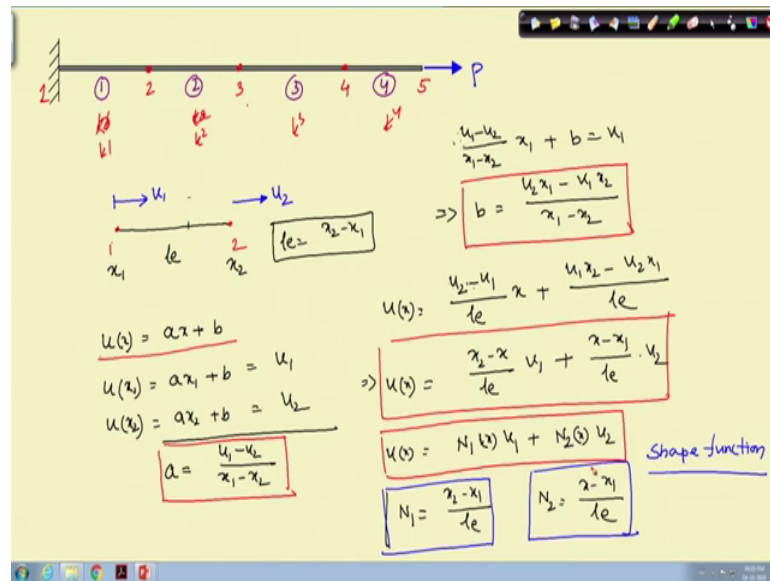 P
1 ① 2 ② 3 ③ 4 ④ 5
k1 k² k³ k⁴
u₁ u₂
1 2
x₁ le x₂
le = x₂-x₁
u(x) = ax + b
u(x₁) = ax₁ + b = u₁
u(x₂) = ax₂ + b = u₂
a = (u₁-u₂)/(x₁-x₂)
(u₁-u₂)/(x₁-x₂) x₁ + b = u₁
=> b = (u₂x₁ - u₁x₂)/(x₁-x₂)
u(x) = (u₂-u₁)/le x + (u₁x₂ - u₂x₁)/le
=> u(x) = (x₂-x)/le u₁ + (x-x₁)/le · u₂
u(x) = N₁(x) u₁ + N₂(x) u₂
Shape function
N₁ = (x₂-x₁)/le
N₂ = (x-x₁)/le